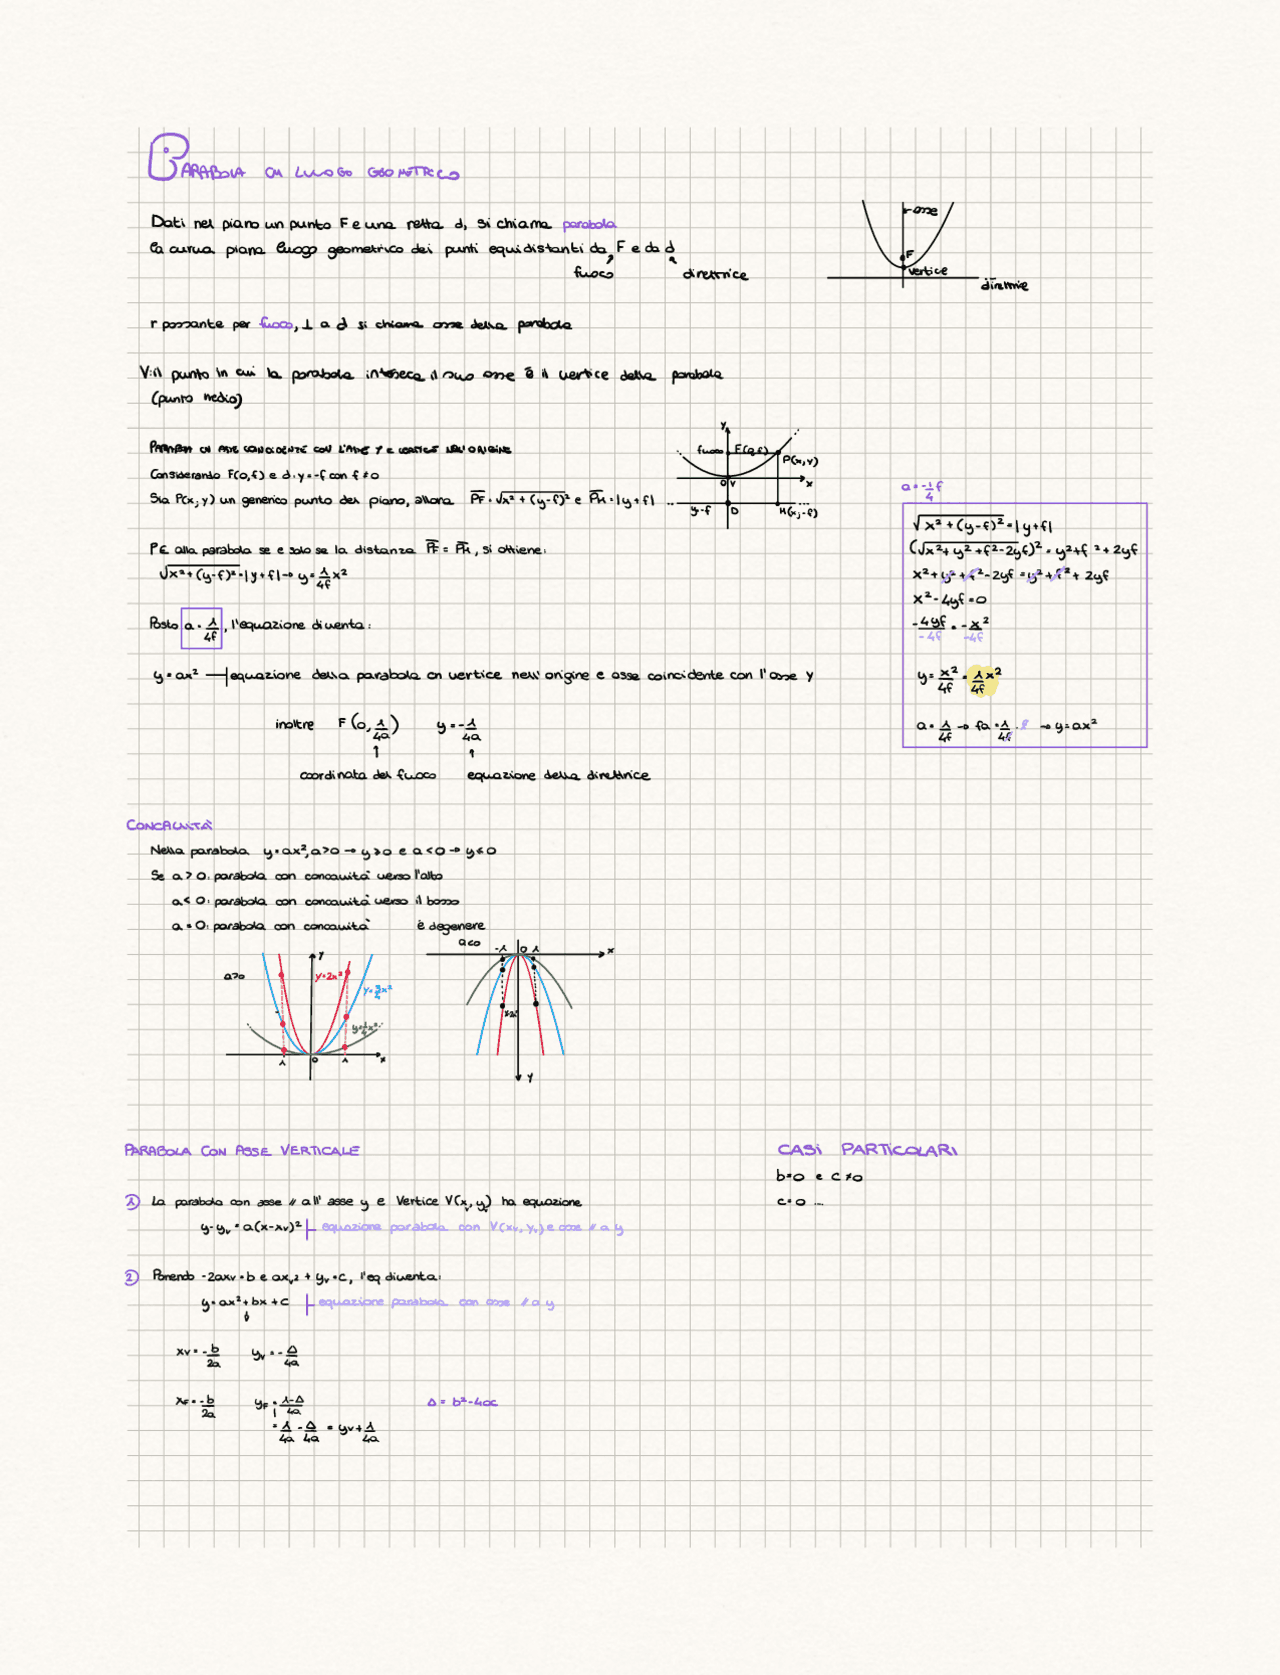 PARABOLA CM LUOGO GEOMETRICO
Dati nel piano un punto F e una retta d, si chiama parabola
la curva piana luogo geometrico dei punti equidistanti da F e da d
fuoco direttrice
asse
F
vertice
r passante per fuoco, ⊥ a d si chiama asse della parabola
V: il punto in cui la parabola interseca il suo asse è il vertice della parabola
(punto medio)
PARABOLA CN ASSE COINCIDENTE CON L'ASSE Y E VERTICE NELL'ORIGINE
Considerando F(0,f) e d: y=-f con f≠0
Sia P(x; y) un generico punto del piano, allora PF=√x²+(y-f)² e PH=|y+f|
y
fuoco F(0,f)
P(x,y)
O V x
y=-f D H(x;-f)
P∈ alla parabola se e solo se la distanza PF = PH, si ottiene:
√x²+(y-f)²=|y+f| → y=1/4f x²
Posto a=1/4f, l'equazione diventa:
y=ax² equazione della parabola cn vertice nell'origine e asse coincidente con l'asse y
inoltre F(0,1/4a) y=-1/4a
coordinata del fuoco equazione della direttrice
√x²+(y-f)²=|y+f|
(√x²+y²+f²-2yf)²=y²+f²+2yf
x²+y²+f²-2yf=y²+f²+2yf
x²-4yf=0
-4yf/-4f=-x²/-4f
y=x²/4f=1/4f x²
a=1/4f → fa=1/4f·f → y=ax²
CONCAVITÀ
Nella parabola y=ax², a>0 → y≥0 e a<0 → y≤0
Se a>0: parabola con concavità verso l'alto
a<0: parabola con concavità verso il basso
a=0: parabola con concavità è degenere
a>0
y
y=2x²
x
O
a<0
-1 O 1 x
y
PARABOLA CON ASSE VERTICALE
1 La parabola con asse // all'asse y e Vertice V(xv, yv) ha equazione
y-yv=a(x-xv)² equazione parabola con V(xv, yv) e asse // a y
2 Ponendo -2axv=b e axv2+yv=c, l'eq diventa:
y=ax²+bx+c equazione parabola con asse // a y
xv=-b/2a yv=-Δ/4a
xF=-b/2a yF=1-Δ/4a Δ=b²-4ac
=1/4a-Δ/4a=yv+1/4a
CASI PARTICOLARI
b=0 e c≠0
c=0 ....